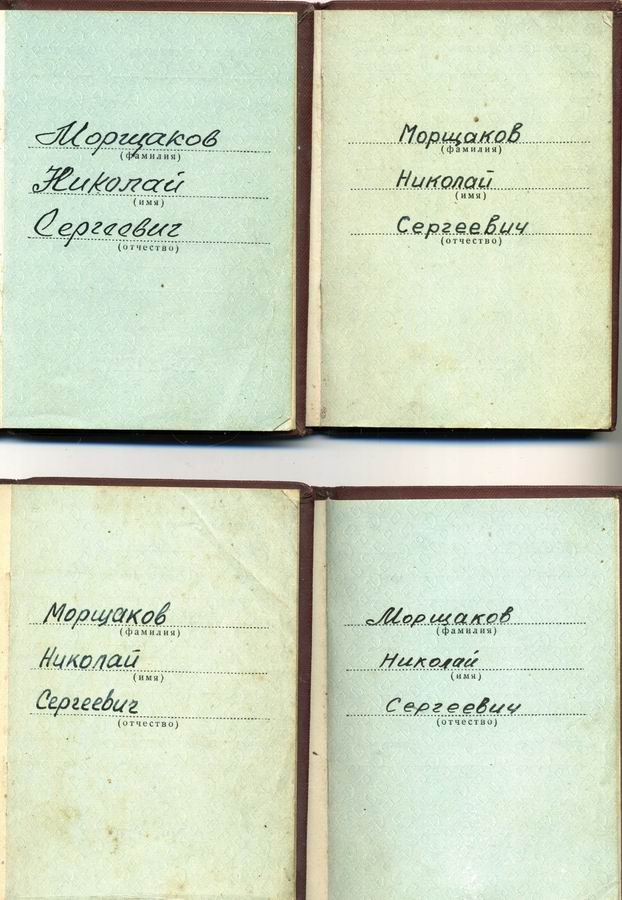 Морщаков
(фамилия)
Николай
(имя)
Сергеевич
(отчество)
Морщаков
(фамилия)
Николай
(имя)
Сергеевич
(отчество)
Морщаков
(фамилия)
Николай
(имя)
Сергеевич
(отчество)
Морщаков
(фамилия)
Николай
(имя)
Сергеевич
(отчество)